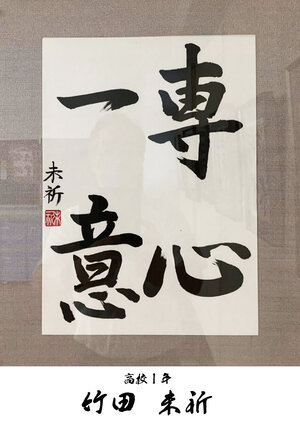 専心
一意
未祈
高校1年
竹田 未祈